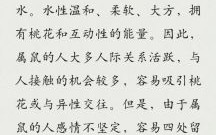 水。水性温和、柔软、大方，拥
有桃花和互动性的能量。因此，
属鼠的人大多人际关系活跃，与
人接触的机会较多，容易吸引桃
花或与异性交往。但是，由于属
鼠的人感情不坚定，容易四处留